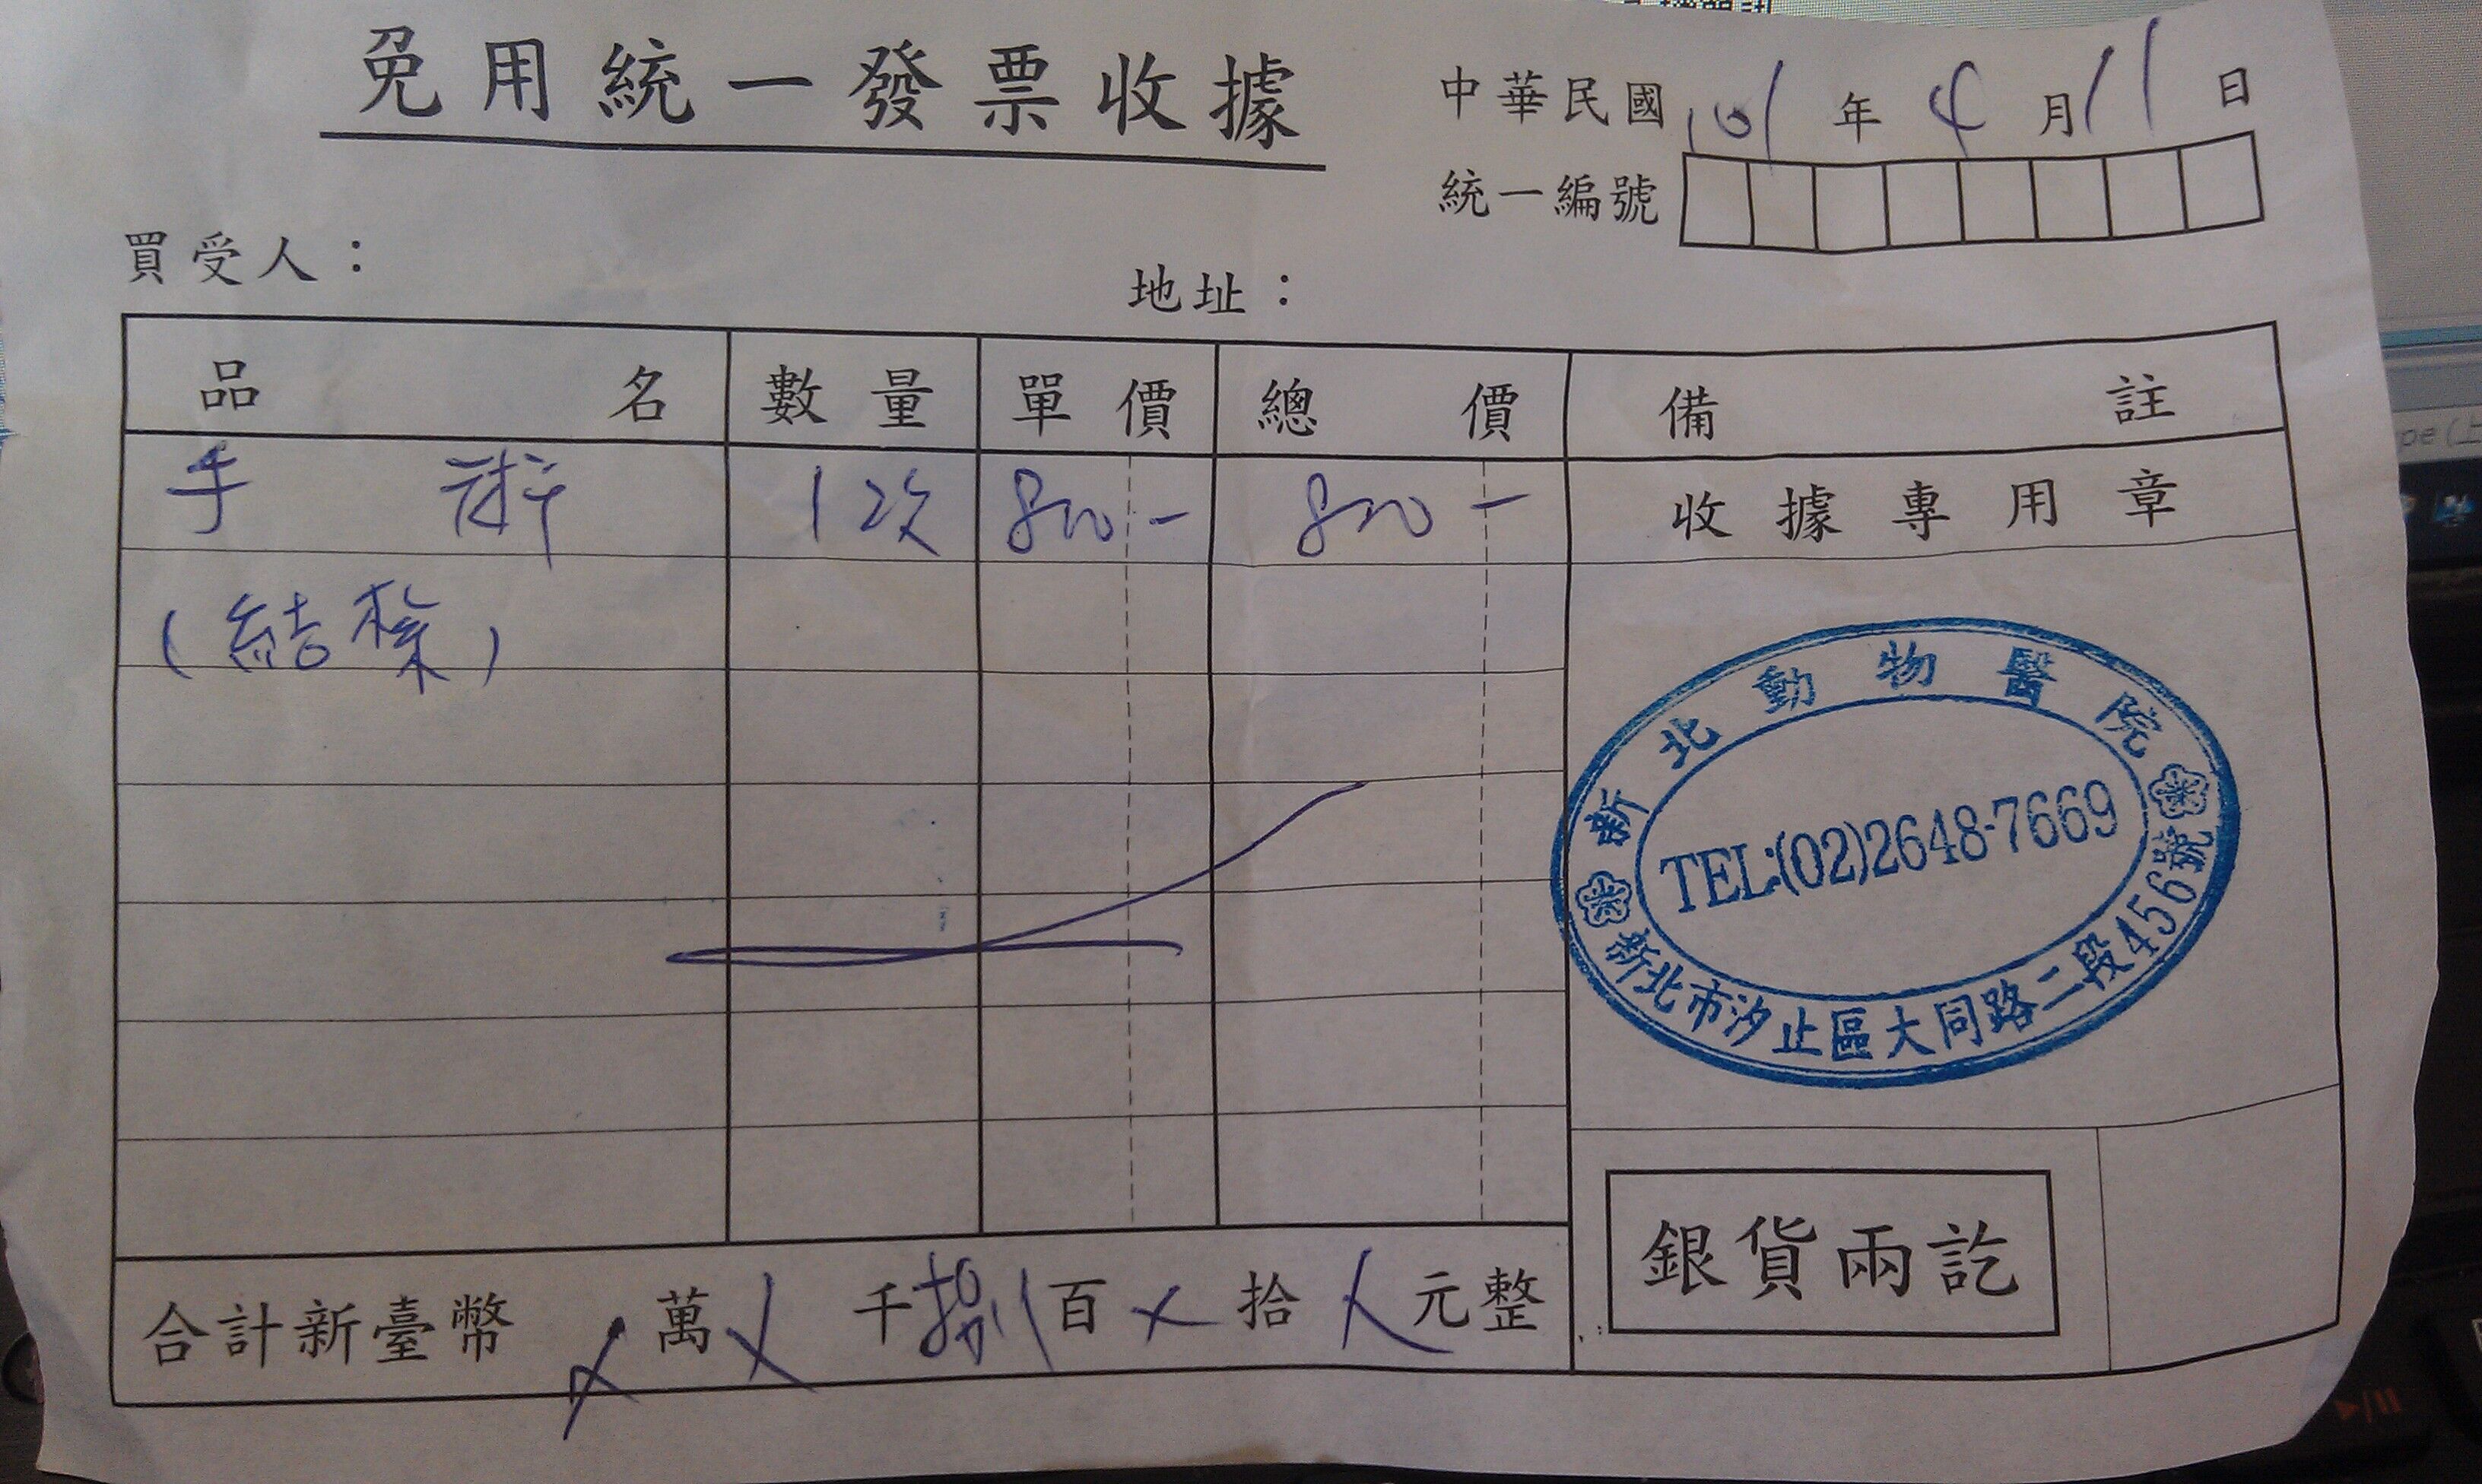 免用統一發票收據
中華民國 101 年 4 月 11 日
統一編號
買受人：
地址：
品名 數量 單價 總價 備註
手術 1次 800- 800- 收據專用章
(結紮)
新北動物醫院
TEL:(02)2648-7669
新北市汐止區大同路二段456號
合計新臺幣 X 萬 X 千 捌 百 X 拾 X 元整
銀貨兩訖